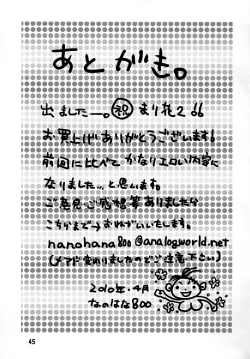 あとがき。
出ましたー。祝 まり花2
お買上げありがとうございます!
前回に比べて かなりエロい内容に
なりました…と思います。
ご意見ご感想等ありましたら
こちらまで→おねがいいたします。
nanohana800@analogworld.net
(メアド変わりましたのでご注意下さい)
2010年・4月
なのはな800
45